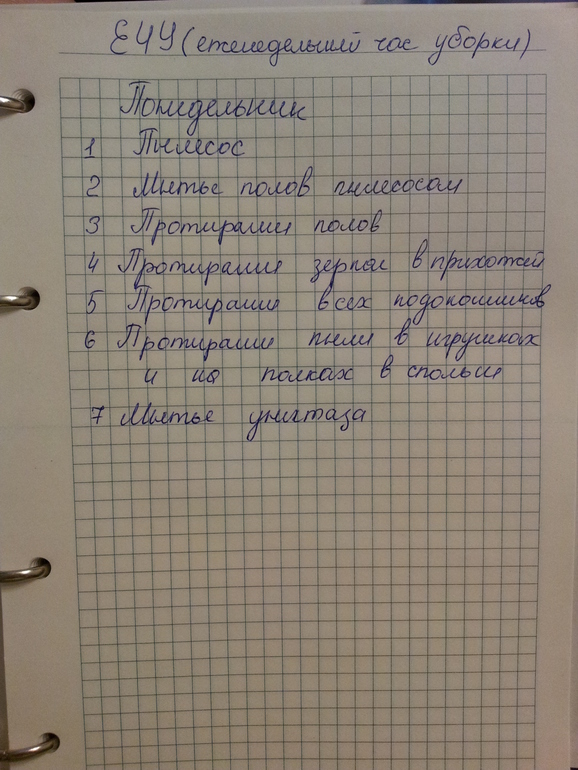 ЕЧУ (еженедельный час уборки)
Понедельник
1 Пылесос
2 Мытье полов пылесосом
3 Протирание полов
4 Протирание зеркал в прихожей
5 Протирание всех подоконников
6 Протирание пыли в игрушках
и на полках в спальни
7 Мытье унитаза